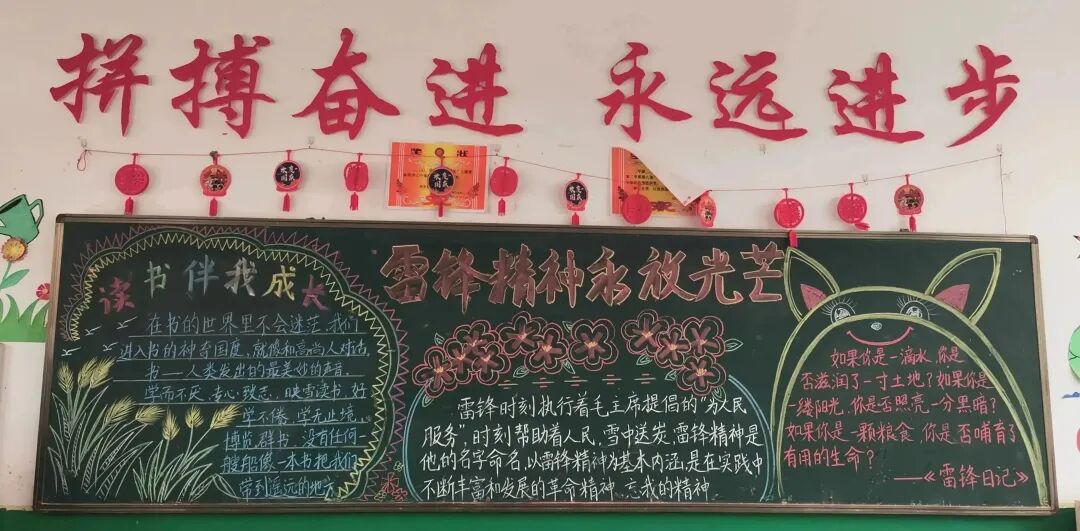 拼搏奋进 永远进步
读书伴我成长
在书的世界里不会迷茫,我们
进入书的神奇国度,就像和高尚人对话,
书——人类发出的最美妙的声音,
学而不厌、专心致志、映雪读书、好
学不倦、学无止境、
博览群书、没有任何一
艘船像一本书把我们
带到遥远的地方
雷锋精神永放光芒
雷锋时刻执行着毛主席提倡的“为人民
服务”,时刻帮助着人民,雪中送炭,雷锋精神是
他的名字命名,以雷锋精神为基本内涵,是在实践中
不断丰富和发展的革命精神、忘我的精神
如果你是一滴水,你是
否滋润了一寸土地?如果你是
一缕阳光,你是否照亮一分黑暗?
如果你是一颗粮食,你是否哺育了
有用的生命?
——《雷锋日记》